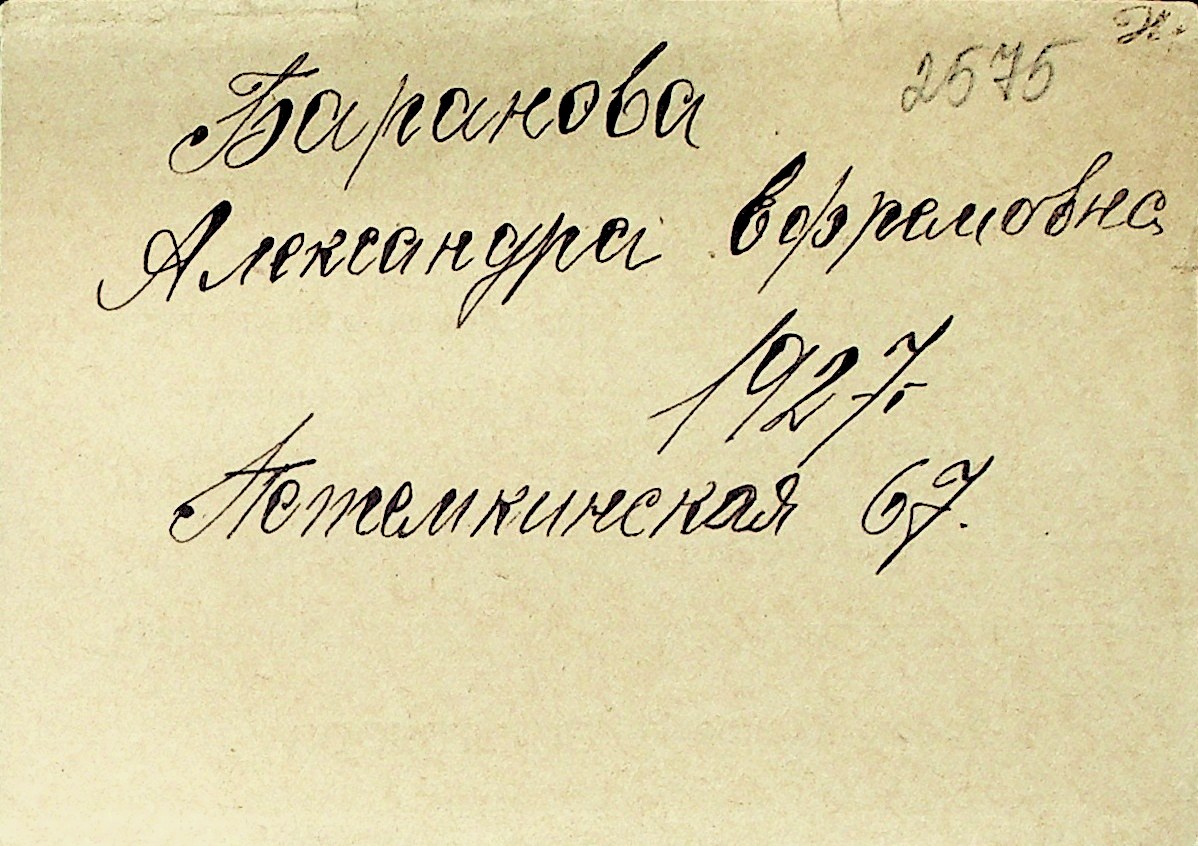 2575
Баранова
Александра Ефремовна
1927 г.
Потемкинская 67.